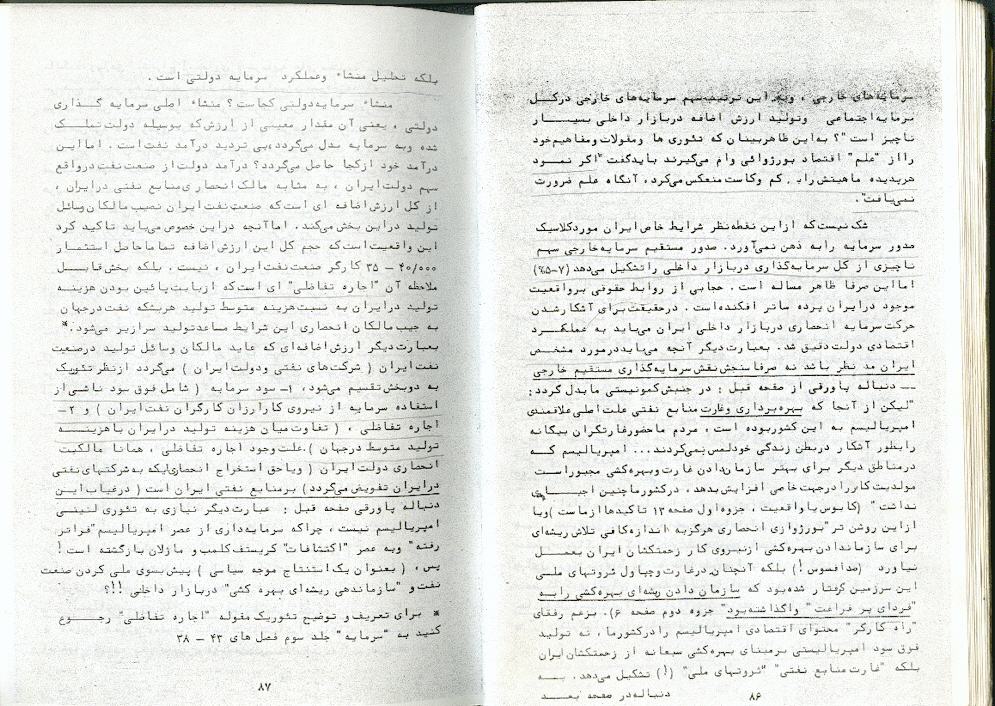 سرمایه‌های خارجی ، وبه این ترتیب سهم سرمایه‌های خارجی درکل
سرمایه اجتماعی وتولید ارزش اضافه دربازار داخلی بسیار
ناچیز است "؟ به این ظاهربینان که تئوری ها ومقولات ومفاهیم خود
رااز "علم" اقتصاد بورژوائی وام می‌گیرند بایدگفت "اگر نمود
هرپدیده ماهیتش را بی کم وکاست منعکس می‌کرد، آنگاه علم ضرورت
نمی‌یافت".
شک نیست که ازاین نقطه‌نظر شرایط خاص ایران مورد کلاسیک
صدور سرمایه رابه ذهن نمی‌آورد. صدور مستقیم سرمایه خارجی سهم
ناچیزی از کل سرمایه‌گذاری دربازار داخلی راتشکیل می‌دهد (۷-۵%)
امااین صرفا ظاهر مساله است. حجابی از روابط حقوقی برواقعیت
موجود درایران پرده ساتر افکنده است. درحقیقت برای آشکار شدن
حرکت سرمایه انحصاری دربازار داخلی ایران می‌باید به عملکرد
اقتصادی دولت دقیق شد. بعبارت دیگر آنچه می‌باید درمورد مشخص
ایران مد نظر باشد نه صرفا سنجش نقش سرمایه‌گذاری مستقیم خارجی
ــ دنباله پاورقی از صفحه قبل : در جنبش کمونیستی ما بدل گردد:
"لیکن از آنجا که بهره‌برداری وغارت منابع نفتی علت اصلی علاقمندی
امپریالیسم به این کشور بوده است ، مردم ما حضور غارتگران بیگانه
رابطور آشکار دربطن زندگی خود لمس نمی‌کردند... امپریالیسم که
درمناطق دیگر برای بهتر سازمان دادن غارت وبهره‌کشی مجبور است
مولدیت کار را درجهت خاصی افزایش بدهد، درکشور ما چنین اجباری
نداشت " (کابوس یا واقعیت ، جزوه اول صفحه ۱۳ تاکیدها ازماست )ویا
ازاین روشن تر "بورژوازی انحصاری هرگز به اندازه کافی تلاش ریشه‌ای
برای سازماندادن بهره‌کشی ازنیروی کار زحمتکشان ایران بعمل
نیاورد (صدافسوس !) بلکه آنچنان درغارت وچپاول ثروتهای ملی
این سرزمین گرفتار شده بود که سازمان دادن ریشه‌ای بهره‌کشی رابه
"فردای پر فراغت " واگذاشته بود" جزوه دوم صفحه ۶). بزعم رفقای
"راه کارگر" محتوای اقتصادی امپریالیسم را درکشور ما، نه تولید
فوق سود امپریالیستی برمبنای بهره‌کشی سبعانه از زحمتکشان ایران
بلکه "غارت منابع نفتی" "ثروتهای ملی" (!) تشکیل می‌دهد. به
دنباله در صفحه بعد
۸۶
بلکه تحلیل منشاء وعملکرد سرمایه دولتی است .
منشاء سرمایه دولتی کجاست ؟ منشاء اصلی سرمایه گذاری
دولتی ، یعنی آن مقدار معینی از ارزش که بوسیله دولت تملک
شده وبه سرمایه بدل می‌گردد، بی تردید درآمد نفت است . اما این
درآمد خود ازکجا حاصل می‌گردد؟ درآمد دولت از صنعت نفت درواقع
سهم دولت ایران ، به مثابه مالک انحصاری منابع نفتی درایران ،
از کل ارزش اضافه ای است که صنعت نفت ایران نصیب مالکان وسائل
تولید دراین بخش می‌کند. اما آنچه دراین خصوص می‌باید تاکید کرد
این واقعیت است که حجم کل این ارزش اضافه تماما حاصل استثمار
۴۰/۰۰۰ – ۳۵ کارگر صنعت نفت ایران ، نیست . بلکه بخش قابل
ملاحظه آن "اجاره تفاضلی" ای است که از بابت پائین بودن هزینه
تولید درایران به نسبت هزینه متوسط تولید هر بشکه نفت درجهان
به جیب مالکان انحصاری این شرایط مساعد تولید سرازیر می‌شود.*
بعبارت دیگر ارزش اضافه‌ای که عاید مالکان وسائل تولید درصنعت
نفت ایران ( شرکت های نفتی ودولت ایران ) می‌گردد ازنظر تئوریک
به دوبخش تقسیم می‌شود، ۱– سود سرمایه ( شامل فوق سود ناشی از
استفاده سرمایه از نیروی کار ارزان کارگران نفت ایران ) و ۲–
اجاره تفاضلی ، ( تفاوت میان هزینه تولید درایران با هزینه
تولید متوسط درجهان ).علت وجود اجاره تفاضلی ، همانا مالکیت
انحصاری دولت ایران ( ویا حق استخراج انحصاری‌ایکه به شرکتهای نفتی
درایران تفویض می‌گردد) برمنابع نفتی ایران است ( درغیاب این
دنباله پاورقی از صفحه قبل : عبارت دیگر نیازی به تئوری لنینی
امپریالیسم نیست ، چراکه سرمایه‌داری از عصر امپریالیسم "فراتر
رفته" وبه عصر "اکتشافات" کریستف کلمب و ماژلان بازگشته است !
پس ، ( بعنوان یک استنتاج موجه سیاسی ) پیش بسوی ملی کردن صنعت
نفت و "سازماندهی ریشه‌ای بهره کشی" دربازار داخلی !!؟
* برای تعریف و توضیح تئوریک مقوله "اجاره تفاضلی" رجوع
کنید به "سرمایه" جلد سوم فصل های ۴۳ – ۳۸
۸۷